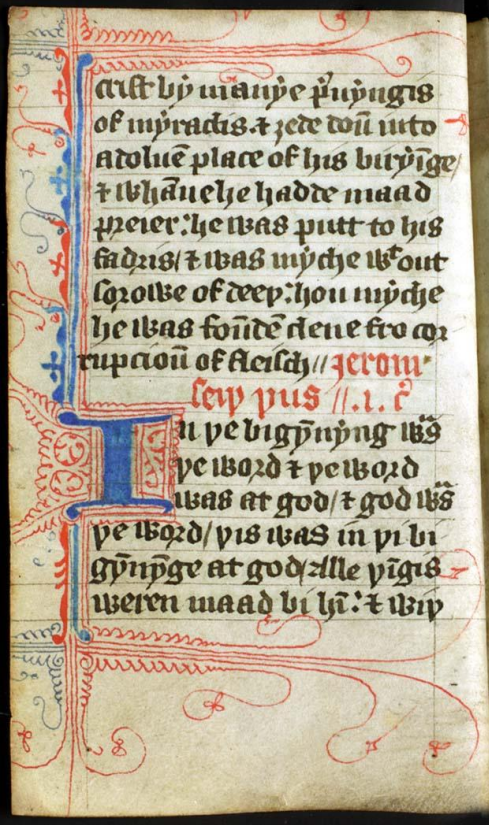 crist bẏ manẏe p̃uẏngis
of mẏraclis ⁊ ȝede doū into
a doluē place of his biriẏīge/
⁊ whāne he hadde maad
preier: he was putt to his
fadris/ ⁊ was mẏche wᵗ out
sorowe of deeþ: hou mẏche
he was foūdē clene fro cor
rupcioū of fleisch // Jerom
seiþ þus //.i. c̃
In þe bigẏ̄nẏng was̃
þe word ⁊ þe word
was at god/ ⁊ god was̃
þe word/ þis was in þi bi
gẏ̄nẏ̄ge at god/ Alle þīgis
weren maad bi hī: ⁊ wiþ